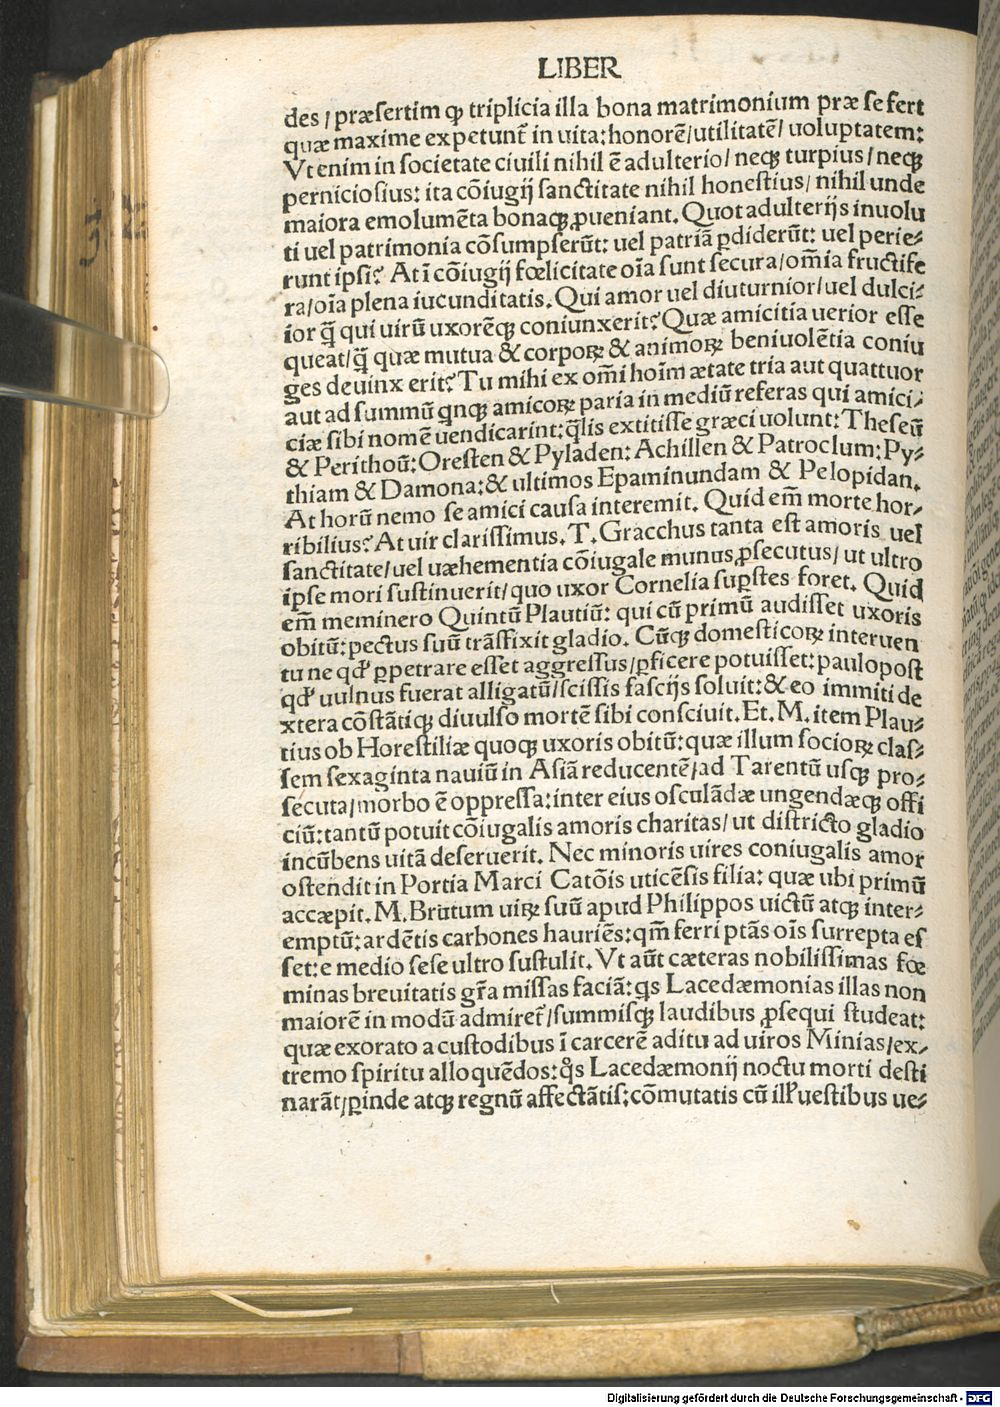 LIBER
des / præsertim ꝙ triplicia illa bona matrimonium præ se fert
quæ maxime expetunt̃ in uita: honorẽ / utilitatẽ / uoluptatem:
Vt enim in societate ciuili nihil ẽ adulterio / neqꝫ turpius / neqꝫ
perniciosius: ita cõiugij sanctitate nihil honestius / nihil unde
maiora emolumẽta bonaqꝫ ꝓueniant. Quot adulterijs inuolu
ti uel patrimonia cõsumpserũt: uel patriã ꝑdiderũt: uel perie⸗
runt ipsi? At ĩ cõiugij fœlicitate oĩa sunt secura / om̃ia fructife
ra / oĩa plena iucunditatis. Qui amor uel diuturnior / uel dulci⸗
ior q̃ qui uirũ uxorẽqꝫ coniunxerit? Quæ amicitia uerior esse
queat / q̃ quæ mutua & corpoꝝ & animoꝝ beniuolẽtia coniu
ges deuinxerit? Tu mihi ex om̃i hoĩm ætate tria aut quattuor
aut ad summũ qnqꝫ amicoꝝ paria in mediũ referas qui amici⸗
ciæ sibi nomẽ uendicarint: q̃lis extitisse græci uolunt: Theseũ
& Perithoũ: Oresten & Pyladen: Achillen & Patroclum: Py⸗
thiam & Damona: & ultimos Epaminundam & Pelopidan.
At horũ nemo se amici causa interemit. Quid em̃ morte hor⸗
ribilius? At uir clarissimus. T. Gracchus tanta est amoris uel
sanctitate / uel uæhementia cõiugale munus ꝓsecutus / ut ultro
ipse mori sustinuerit / quo uxor Cornelia suꝑstes foret. Quid
em̃ meminero Quintũ Plautiũ: qui cũ primũ audisset uxoris
obitũ: pectus suũ trãsfixit gladio. Cũqꝫ domesticoꝝ interuen
tu ne qđ ꝑpetrare esset aggressus / ꝑficere potuisset: paulopost
qđ uulnus fuerat alligatũ / scissis fascijs soluit: & eo immiti de
xtera cõstãtiqꝫ diuulso mortẽ sibi consciuit. Et. M. item Plau⸗
tius ob Horestiliæ quoqꝫ uxoris obitũ: quæ illum socioꝝ clas⸗
sem sexaginta nauiũ in Asiã reducentẽ / ad Tarentũ usqꝫ pro⸗
secuta / morbo ẽ oppressa: inter eius osculãdæ ungendæqꝫ offi
ciũ: tantũ potuit cõiugalis amoris charitas / ut districto gladio
incũbens uitã deseruerit. Nec minoris uires coniugalis amor
ostendit in Portia Marci Catõis uticẽsis filia: quæ ubi primũ
accæpit. M. Brutum uiꝝ suũ apud Philippos uictũ atqꝫ inter⸗
emptũ: ardẽtis carbones hauriẽs: qm̃ ferri ptãs oĩs surrepta es
set: e medio sese ultro sustulit. Vt aũt cæteras nobilissimas fœ
minas breuitatis gr̃a missas faciã: qs Lacedæmonias illas non
maiorẽ in modũ admiret̃ / summisqꝫ laudibus ꝓsequi studeat:
quæ exorato a custodibus ĩ carcerẽ aditu ad uiros Minias / ex⸗
tremo spiritu alloquẽdos: q̊s Lacedæmonij noctu morti desti
narãt / ꝑinde atqꝫ regnũ affectãtis: cõmutatis cũ ill̕ uestibus ue⸗
Digitalisierung gefördert durch die Deutsche Forschungsgemeinschaft - DFG